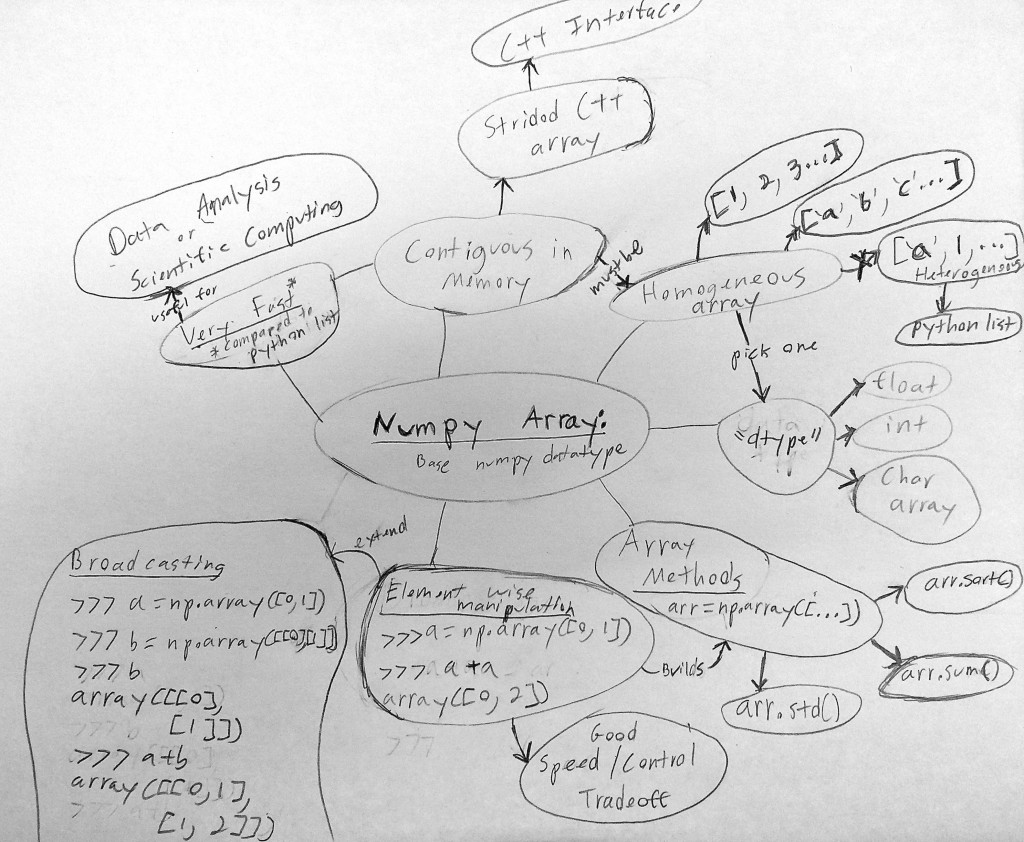 C++ Interface
Strided C++
array
[1, 2, 3...]
['a','b','c'...]
['a', 1, ...]
Heterogenous
python list
Data Analysis
or
Scientific Computing
useful for
Very Fast*
*compared to
python list
Contiguous in
Memory
must be
Homogeneous
array
pick one
"dtype"
float
int
Char
array
Numpy Array:
Base numpy datatype
Broadcasting
>>> a = np.array([0,1])
>>> b = np.array([[0],[1]])
>>> b
array([[0],
[1]])
>>> a+b
array([[0,1],
[1,2]])
extend
Element wise
manipulation
>>> a = np.array([0, 1])
>>> a + a
array([0, 2])
>>>
Builds
Good
Speed/Control
Tradeoff
Array
Methods
arr = np.array([...])
arr.sort()
arr.sum()
arr.std()